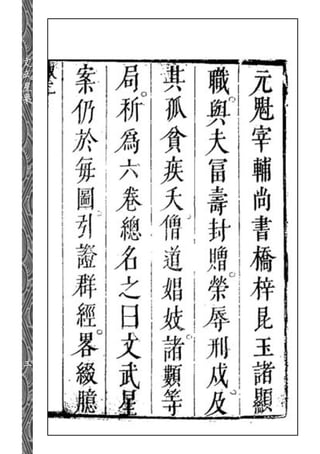 元魁宰輔尚書橋梓昆玉諸顯
職與夫冨壽封贈榮辱刑戍及
其孤貧疾夭僧道娼妓諸類等
局析爲六卷總名之曰文武星
案仍於每圖引證群經畧綴臆